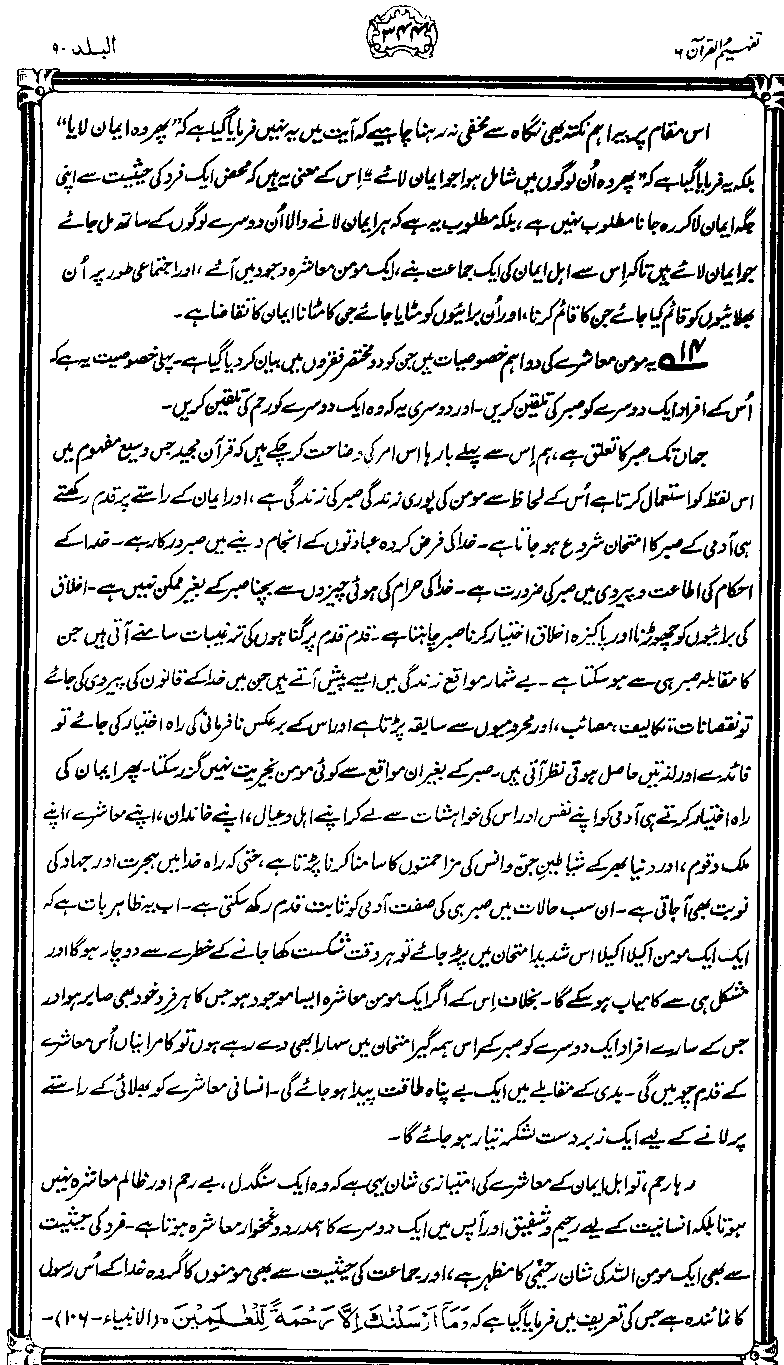 تفہیم القرآن ۶
۳۴۴
البلد ۹۰
اس مقام پر یہ اہم نکتہ بھی نگاہ سے مخفی نہ رہنا چاہیے کہ آیت میں یہ نہیں فرمایا گیا ہے کہ ”پھر وہ ایمان لایا“
بلکہ یہ فرمایا گیا ہے کہ ”پھر وہ اُن لوگوں میں شامل ہوا جو ایمان لائے“ اِس کے معنی یہ ہیں کہ محض ایک فرد کی حیثیت سے اپنی
جگہ ایمان لا کر رہ جانا مطلوب نہیں ہے، بلکہ مطلوب یہ ہے کہ ہر ایمان لانے والا اُن دوسرے لوگوں کے ساتھ مل جائے
جو ایمان لائے ہیں تاکہ اِس سے اہل ایمان کی ایک جماعت بنے، ایک مومن معاشرہ وجود میں آئے، اور اجتماعی طور پر اُن
بھلائیوں کو قائم کیا جائے جن کا قائم کرنا، اور اُن برائیوں کو مٹایا جائے جن کا مٹانا ایمان کا تقاضا ہے۔
۱۴؎ یہ مومن معاشرے کی دو اہم خصوصیات ہیں جن کو دو مختصر فقروں میں بیان کر دیا گیا ہے۔ پہلی خصوصیت یہ ہے کہ
اُس کے افراد ایک دوسرے کو صبر کی تلقین کریں۔ اور دوسری یہ کہ وہ ایک دوسرے کو رحم کی تلقین کریں۔
جہاں تک صبر کا تعلق ہے، ہم اِس سے پہلے بارہا اس امر کی وضاحت کر چکے ہیں کہ قرآن مجید جس وسیع مفہوم میں
اس لفظ کو استعمال کرتا ہے اُس کے لحاظ سے مومن کی پوری زندگی صبر کی زندگی ہے، اور ایمان کے راستے پر قدم رکھتے
ہی آدمی کے صبر کا امتحان شروع ہو جاتا ہے۔ خدا کی فرض کردہ عبادتوں کے انجام دینے میں صبر درکار ہے۔ خدا کے
احکام کی اطاعت و پیروی میں صبر کی ضرورت ہے۔ خدا کی حرام کی ہوئی چیزوں سے بچنا صبر کے بغیر ممکن نہیں ہے۔ اخلاق
کی برائیوں کو چھوڑنا اور پاکیزہ اخلاق اختیار کرنا صبر چاہتا ہے۔ قدم قدم پر گناہوں کی ترغیبات سامنے آتی ہیں جن
کا مقابلہ صبر ہی سے ہو سکتا ہے۔ بے شمار مواقع زندگی میں ایسے پیش آتے ہیں جن میں خدا کے قانون کی پیروی کی جائے
تو نقصانات، تکالیف، مصائب، اور محرومیوں سے سابقہ پڑتا ہے اور اس کے برعکس نافرمانی کی راہ اختیار کی جائے تو
فائدے اور لذتیں حاصل ہوتی نظر آتی ہیں۔ صبر کے بغیر ان مواقع سے کوئی مومن بخیریت نہیں گزر سکتا۔ پھر ایمان کی
راہ اختیار کرتے ہی آدمی کو اپنے نفس اور اس کی خواہشات سے لے کر اپنے اہل و عیال، اپنے خاندان، اپنے معاشرے، اپنے
ملک و قوم، اور دنیا بھر کے شیاطینِ جن و انس کی مزاحمتوں کا سامنا کرنا پڑتا ہے، حتیٰ کہ راہ خدا میں ہجرت اور جہاد کی
نوبت بھی آ جاتی ہے۔ ان سب حالات میں صبر ہی کی صفت آدمی کو ثابت قدم رکھ سکتی ہے۔ اب یہ ظاہر بات ہے کہ
ایک ایک مومن اکیلا اکیلا اس شدید امتحان میں پڑ جائے تو ہر وقت شکست کھا جانے کے خطرے سے دوچار ہوگا اور
مشکل ہی سے کامیاب ہو سکے گا۔ بخلاف اِس کے اگر ایک مومن معاشرہ ایسا موجود ہو جس کا ہر فرد خود بھی صابر ہو اور
جس کے سارے افراد ایک دوسرے کو صبر کے اس ہمہ گیر امتحان میں سہارا بھی دے رہے ہوں تو کامرانیاں اُس معاشرے
کے قدم چومیں گی۔ بدی کے مقابلے میں ایک بے پناہ طاقت پیدا ہو جائے گی۔ انسانی معاشرے کو بھلائی کے راستے
پر لانے کے لیے ایک زبردست لشکر تیار ہو جائے گا۔
رہا رحم، تو اہل ایمان کے معاشرے کی امتیازی شان یہی ہے کہ وہ ایک سنگدل، بے رحم اور ظالم معاشرہ نہیں
ہوتا بلکہ انسانیت کے لیے رحیم و شفیق اور آپس میں ایک دوسرے کا ہمدرد و غمخوار معاشرہ ہوتا ہے۔ فرد کی حیثیت
سے بھی ایک مومن اللہ کی شان رحیمی کا مظہر ہے، اور جماعت کی حیثیت سے بھی مومنوں کا گروہ خدا کے اُس رسول
کا نمائندہ ہے جس کی تعریف میں فرمایا گیا ہے کہ وَمَآ اَرْسَلْنٰكَ اِلَّا رَحْمَةً لِّلْعٰلَمِيْنَ ۝ (الانبیاء۔ ۱۰۶)۔